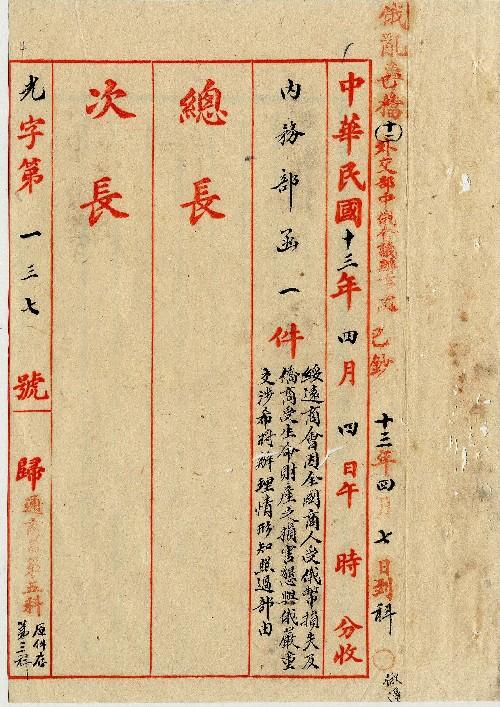 俄亂
十二
外交部中俄會議辦事處
已鈔
十三年四月七日到科
中華民國十三年四月四日午時分收
內務部函一件
綏遠商會因全國商人受俄幣損失及
僑商受生命財產之損害懇與俄嚴重
交涉希將辦理情形知照過部由
總長
次長
光字第一三七號
歸通商司第五科
原件存
第三科